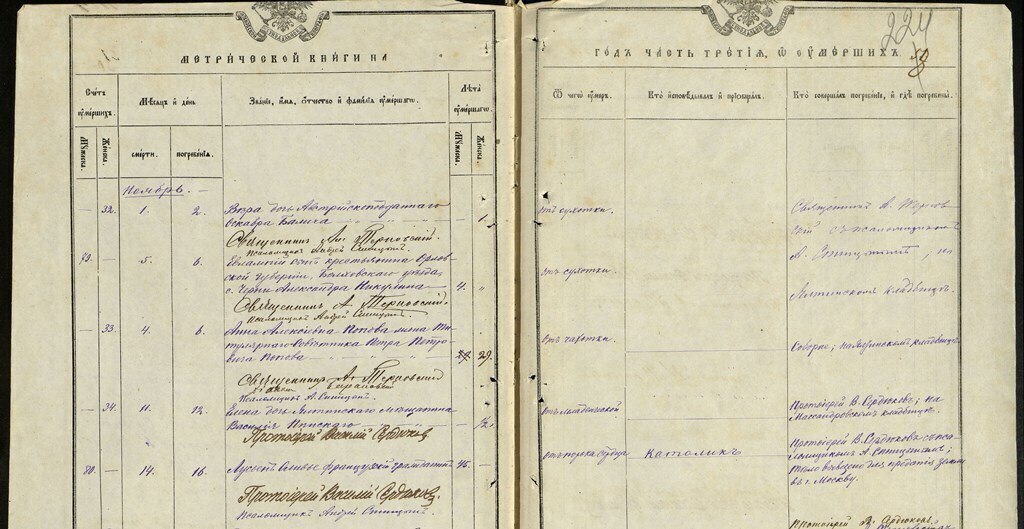 МЕТРИЧЕСКОЙ КНИГИ НА
Счетъ умершихъ.
Мѣсяцъ и день
Званіе, имя, отчество и фамилія умершаго.
Лѣта умершаго.
Мужеска.
Женска.
смерти.
погребенія.
Мужеска.
Женска.
Ноябрь.
32. 1. 2. Вѣра дочь Австрійскоподданнаго
Оскара 1.
Священникъ Ал. Терновскій.
Псаломщикъ Андрей Синицкій.
79. 5. 6. сынъ крестьянина Орлов-
ской Губерніи, Болховскаго уѣзда,
с. Александра Никулина 4. "
Священникъ А. Терновскій.
Псаломщикъ Андрей Синицкій.
33. 4. 6. Анна Алексѣевна Попова жена Ти-
тулярнаго Совѣтника Петра Петро-
вича Попова 29.
Священникъ А. Терновскій
Псаломщикъ А. Синицкій.
34. 11. 12. Елена дочь Ялтинскаго мѣщанина
Василія
Протоіерей Василій Сердюковъ
80. 14. 16. Французскій гражданинъ 45.
Протоіерей Василій Сердюковъ.
Псаломщикъ Андрей Синицкій.
ГОДЪ ЧАСТЬ ТРЕТІЯ, Ѡ ОУМЕРШИХЪ
224
Ѿ чего умеръ.
Кто исповѣдывалъ и пріобщалъ.
Кто совершалъ погребеніе, и гдѣ погребены.
отъ сухотки.
Священникъ А. Тернов-
скій съ псаломщикомъ
А. Синицкимъ; на
отъ сухотки.
Ялтинскомъ кладбищѣ.
отъ чахотки.
Соборне; на кладбищѣ.
отъ младенческой
Протоіерей В. Сердюковъ; на
Массандровскомъ кладбищѣ.
отъ порока сердца
Католикъ
Протоіерей В. Сердюковъ съ пса-
ломщикомъ А. Синицкимъ;
тѣло вывезено для преданія землѣ
въ г. Москву.
Протоіерей В. Сердюковъ